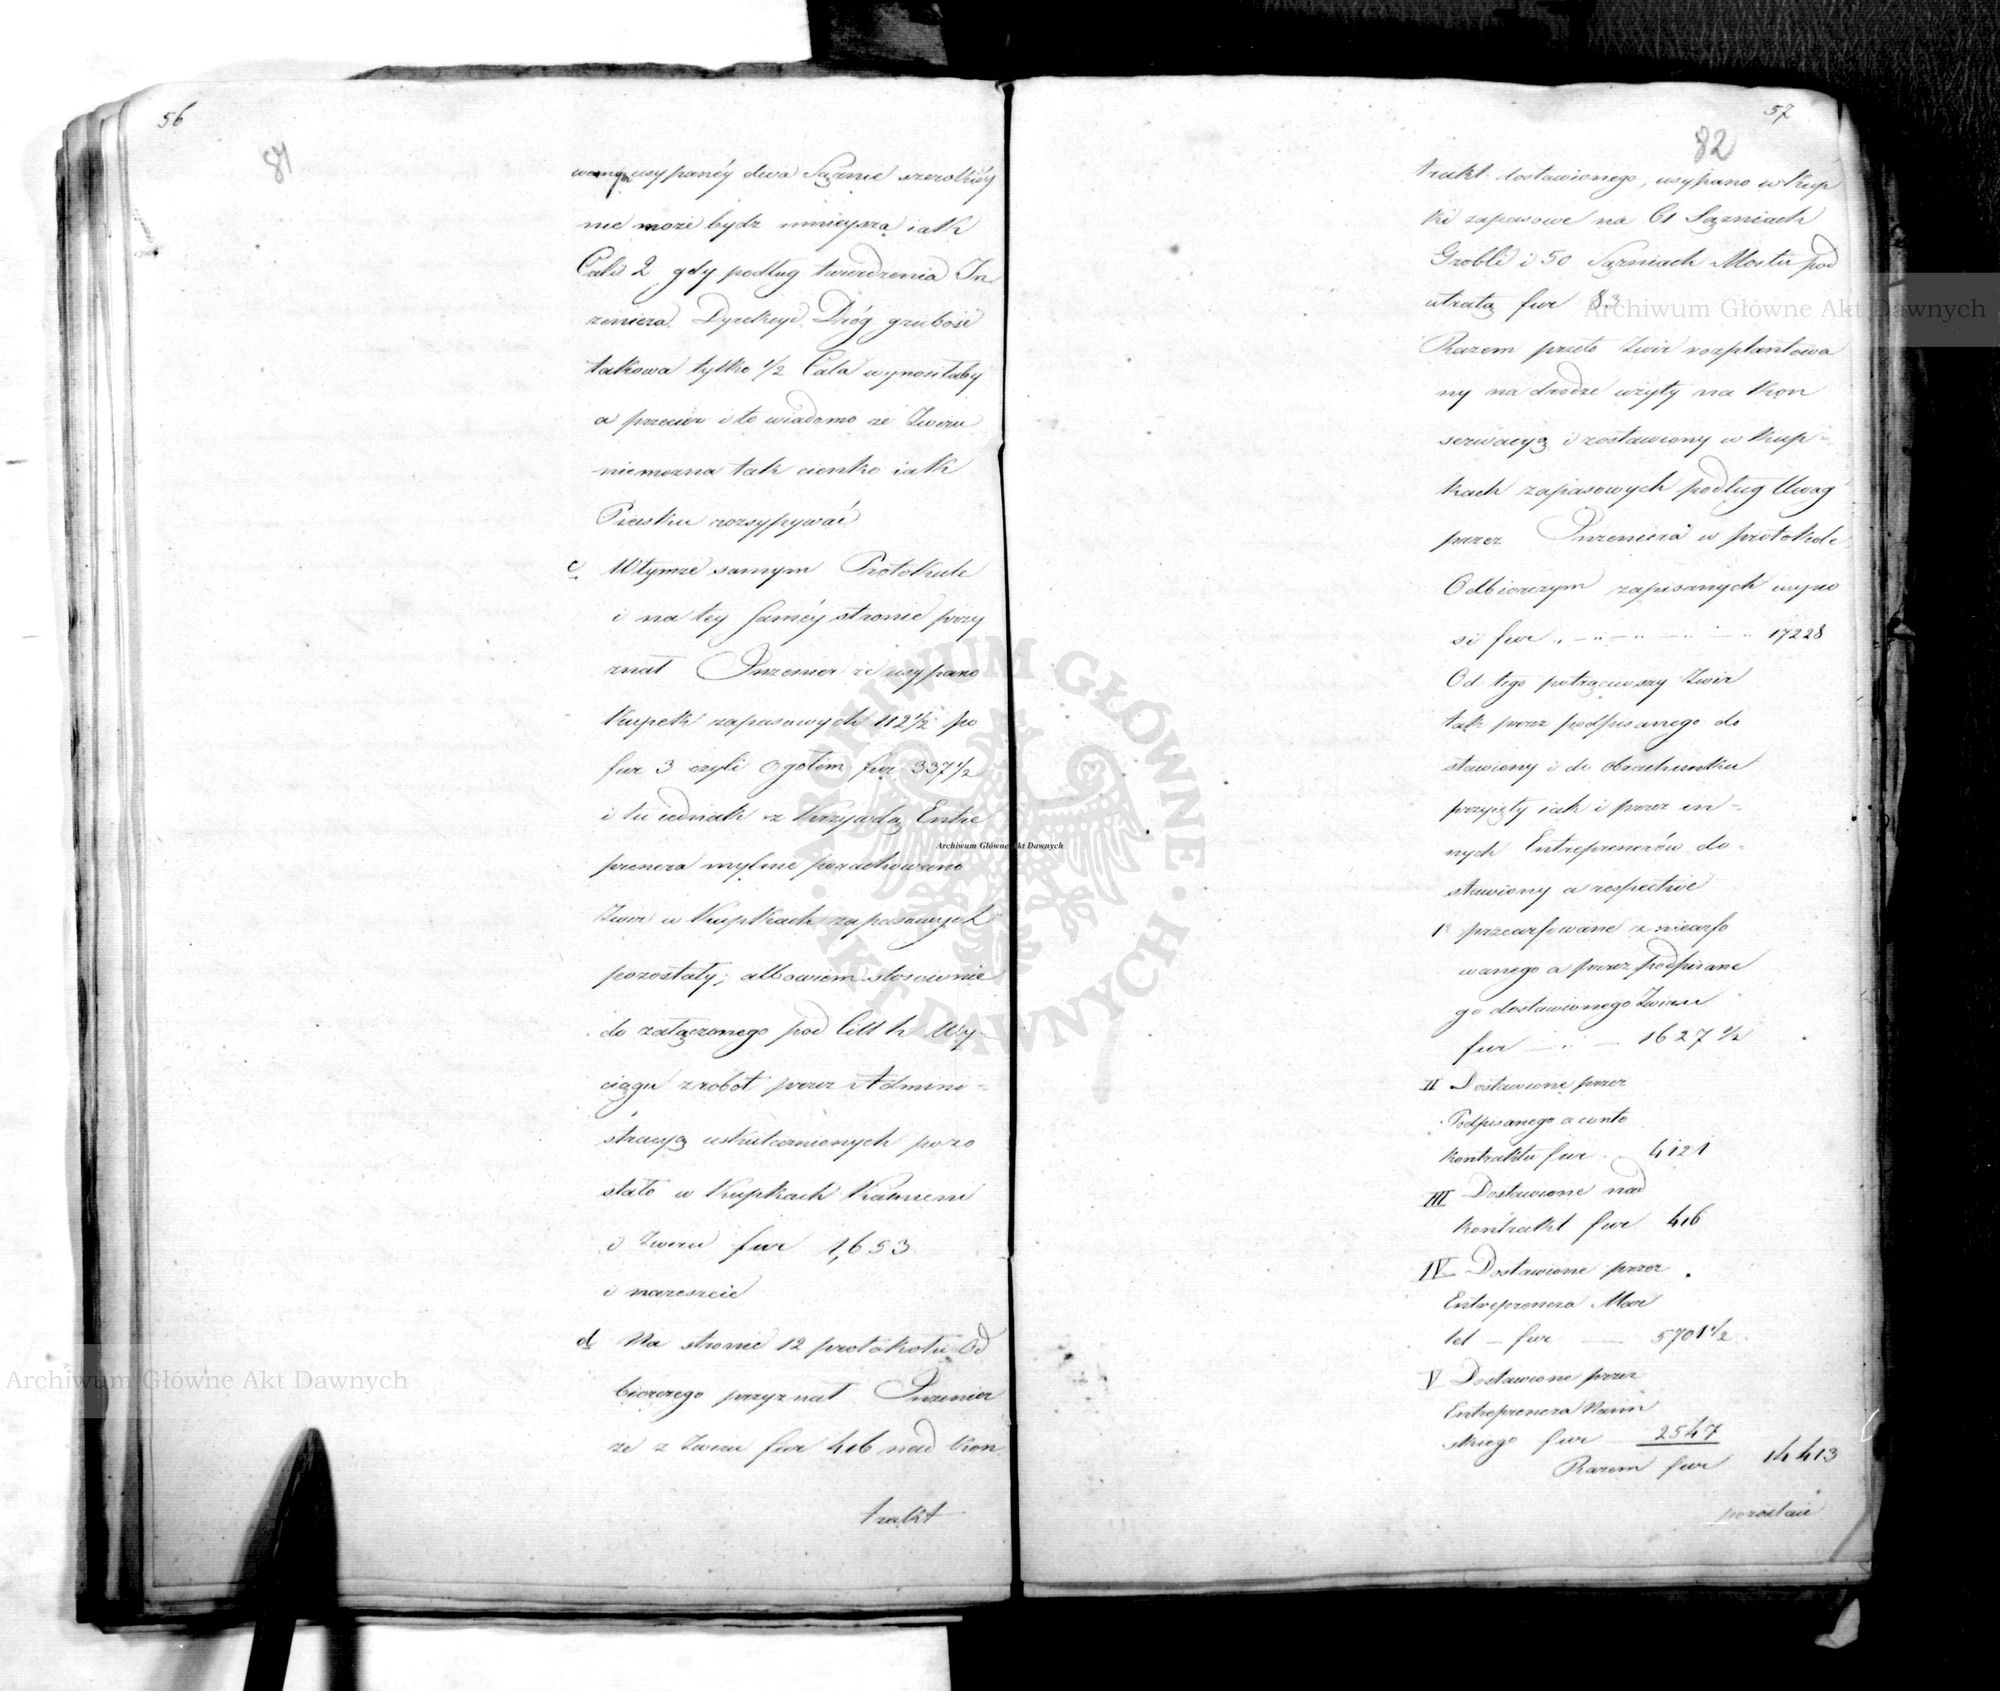 56
81
usypanéy dwa Sążnie szerokiéy
nie może bydz mnieysza iak
Cali 2 gdy podług twierdzenia In
zeniera Dyrekcyi Dróg grubość
takowa tylko 1/2 Cala wynosiłaby
a przecież i to wiadomo że Zwiru
niemożna tak cienko iak
Piasku rozsypywać
c Wtymże samym Protokule
i na tey saméy stronie przy
znał Inzenier że usypano
Kupek zapasowych 112 1/2 po
fur 3 czyli Ogołem fur 337 1/2
i tu iednak z Krzywdą Entre
prenera mylnie porachowano
Zwir w Kupkach zapasowych
pozostały; albowiem stosownie
do załączonego pod Litt h Wy-
ciągu z robót przez Admini-
stracyą uskutecznionych pozo
stało w Kupkach Kamieni
i Zwiru fur 1,653
i nareszcie
d Na stronie 12 protokołu Od
biorczego przyznał Inzenier
że z Zwiru fur 416 nad Kon
trakt
57
82
trakt dostawionego, usypano w Kup
ki zapasowe na 61 Sążniach
Grobli i 50 Sążniach Mostu pod
utratą fur 83
Razem przeto Zwir rozplantowa
ny na drodze użyty na Kon
serwacyą i zostawiony w Kup-
kach zapasowych podług Uwag
przez Inzeniera w protokole
Odbiorczym zapisanych wyno
si fur 17228
Od tego potrąciwszy Zwir
tak przez podpisanego do
stawiony i do obrachunku
przyięty iak i przez in-
nych Entreprenerów do-
stawiony a respective
1° przearfowane z niearfo
wanego a przez podpisane
go dostawionego Zwiru
fur 1627 1/2
II Dostawione przez
Podpisanego a conto
Kontraktu fur 4121
III Dostawione nad
Kontrakt fur 416
IV Dostawione przez
Entreprenera Mar
tel - fur 5701 1/2
V Dostawione przez
Entreprenera
skiego fur 2547
Razem fur 14413
pozostaie
Archiwum Główne Akt Dawnych
Archiwum Główne Akt Dawnych
Archiwum Główne Akt Dawnych
ARCHIWUM GŁÓWNE · AKT DAWNYCH ·